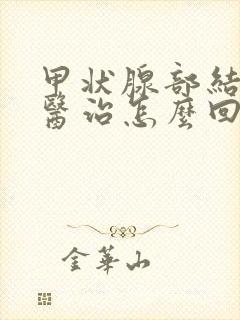 甲状腺部結
醫治怎麼回
金華山